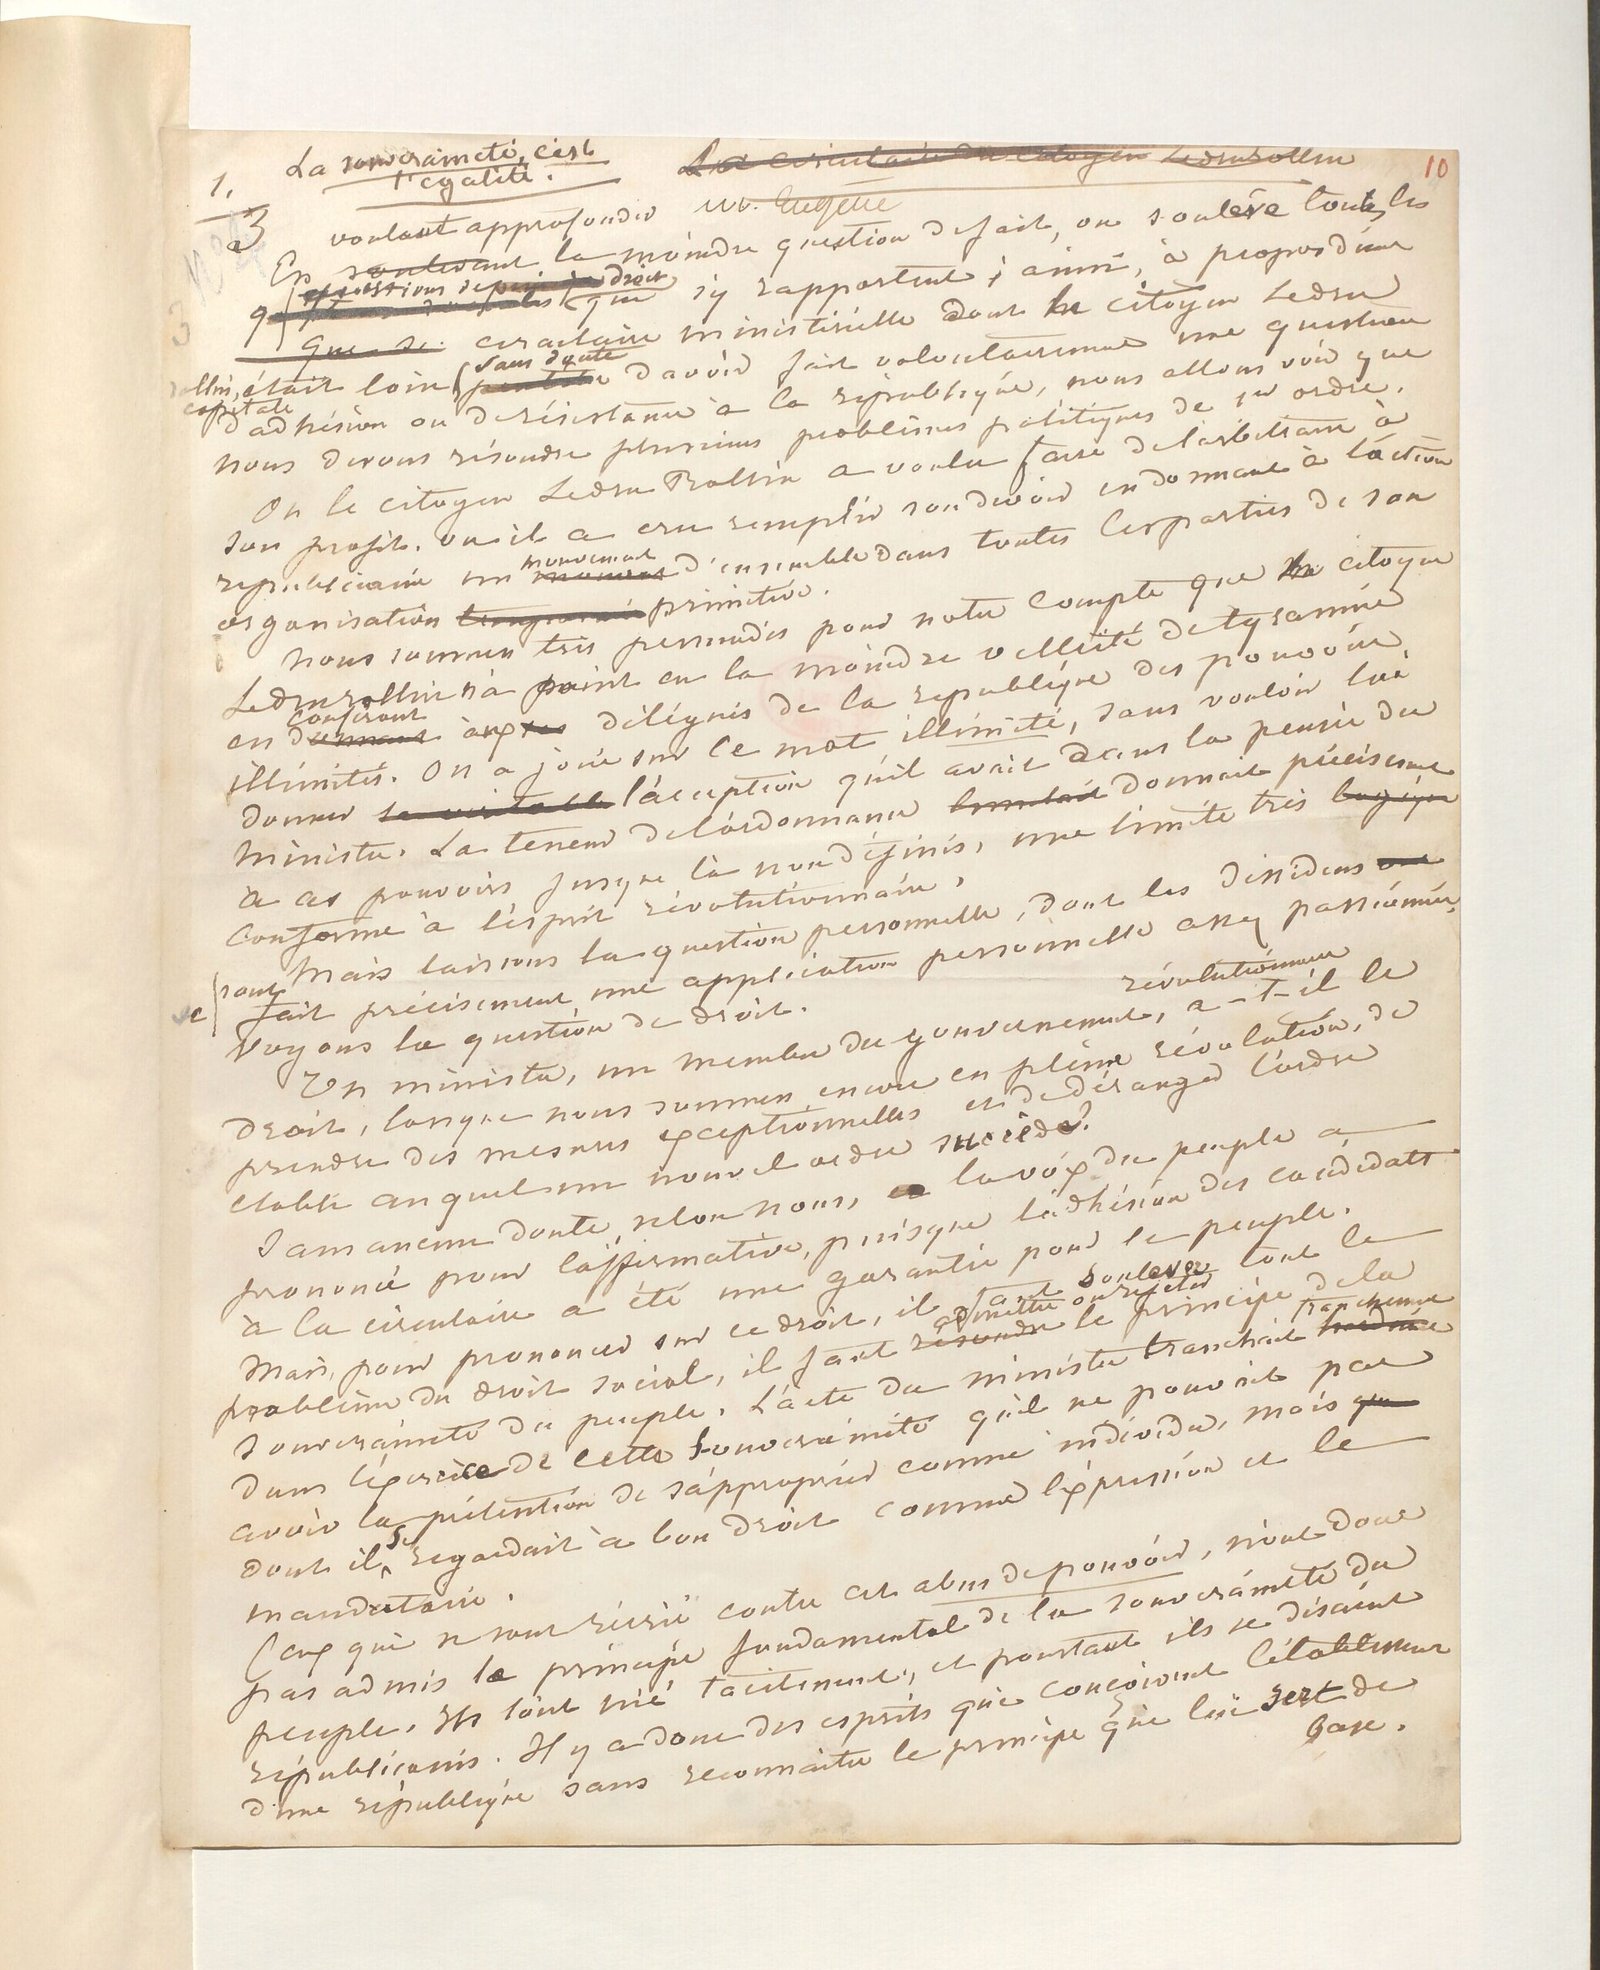 La souveraineté, c'est
l'égalité.
La circulaire du citoyen Ledru Rollin
10
1.
3
voulant approfondir
Mr. Eugène
En soulevant la moindre question de fait, on soulève toutes les
questions de droit
qui s'y rapportent; ainsi, à propos d'une
que se circulaire ministérielle dont le citoyen Ledru
sans doute
Rollin, était loin d'avoir fait volontairement une question
capitale
d'adhésion ou de résistance à la république, nous allons voir que
nous devons résoudre plusieurs problèmes politiques de 1er ordre.
Ou le citoyen Ledru Rollin a voulu faire de l'arbitraire à
son profit, ou il a cru remplir son devoir en donnant à l'action
mouvement
républicaine un d'ensemble dans toutes les parties de son
organisation primitive.
Nous sommes très persuadés pour notre compte que le citoyen
Ledru rollin n'a point eu la moindre velléité de tyrannie
conférant
en donnant aux délégués de la république des pouvoirs
illimités. On a joué sur ce mot illimité, sans vouloir lui
donner la véritable l'acception qu'il avait dans la pensée du
ministre. La teneur de l'ordonnance donnait précisément
à ces pouvoirs jusque là non définis, une limite très
conforme à l'esprit révolutionnaire.
Mais laissons la question personnelle, dont les dissidens ont
sont
fait précisément une application personnelle assez passionnée,
Voyons la question de droit.
révolutionnaire
Un ministre, un membre du gouvernement, a-t-il le
droit, lorsque nous sommes encore en pleine révolution, de
prendre des mesures exceptionnelles et de déranger l'ordre
établi auquel un nouvel ordre succède?
Sans aucun doute, selon nous, la voix du peuple a
prononcé pour l'affirmative, puisque l'adhésion des candidats
à la circulaire a été une garantie pour le peuple.
Mais, pour prononcer sur ce droit, il faut soulever tout le
admettre ou rejeter
problème du droit social, il faut résoudre le principe de la
franchement
souveraineté du peuple. L'acte du ministre tranchait
dans l'exercice de cette souveraineté qu'il ne pouvait pas
avoir la prétention de s'approprier comme individu, mais que
se
dont il regardait à bon droit comme l'expression et le
mandataire.
Ceux qui se sont récrié contre cet abus de pouvoir, n'ont donc
pas admis le principe fondamental de la souveraineté du
peuple. Ils l'ont nié tacitement, et pourtant ils se disaient
républicains. Il y a donc des esprits qui conçoivent l'établissement
d'une république sans reconnaître le principe qui lui sert de
base.